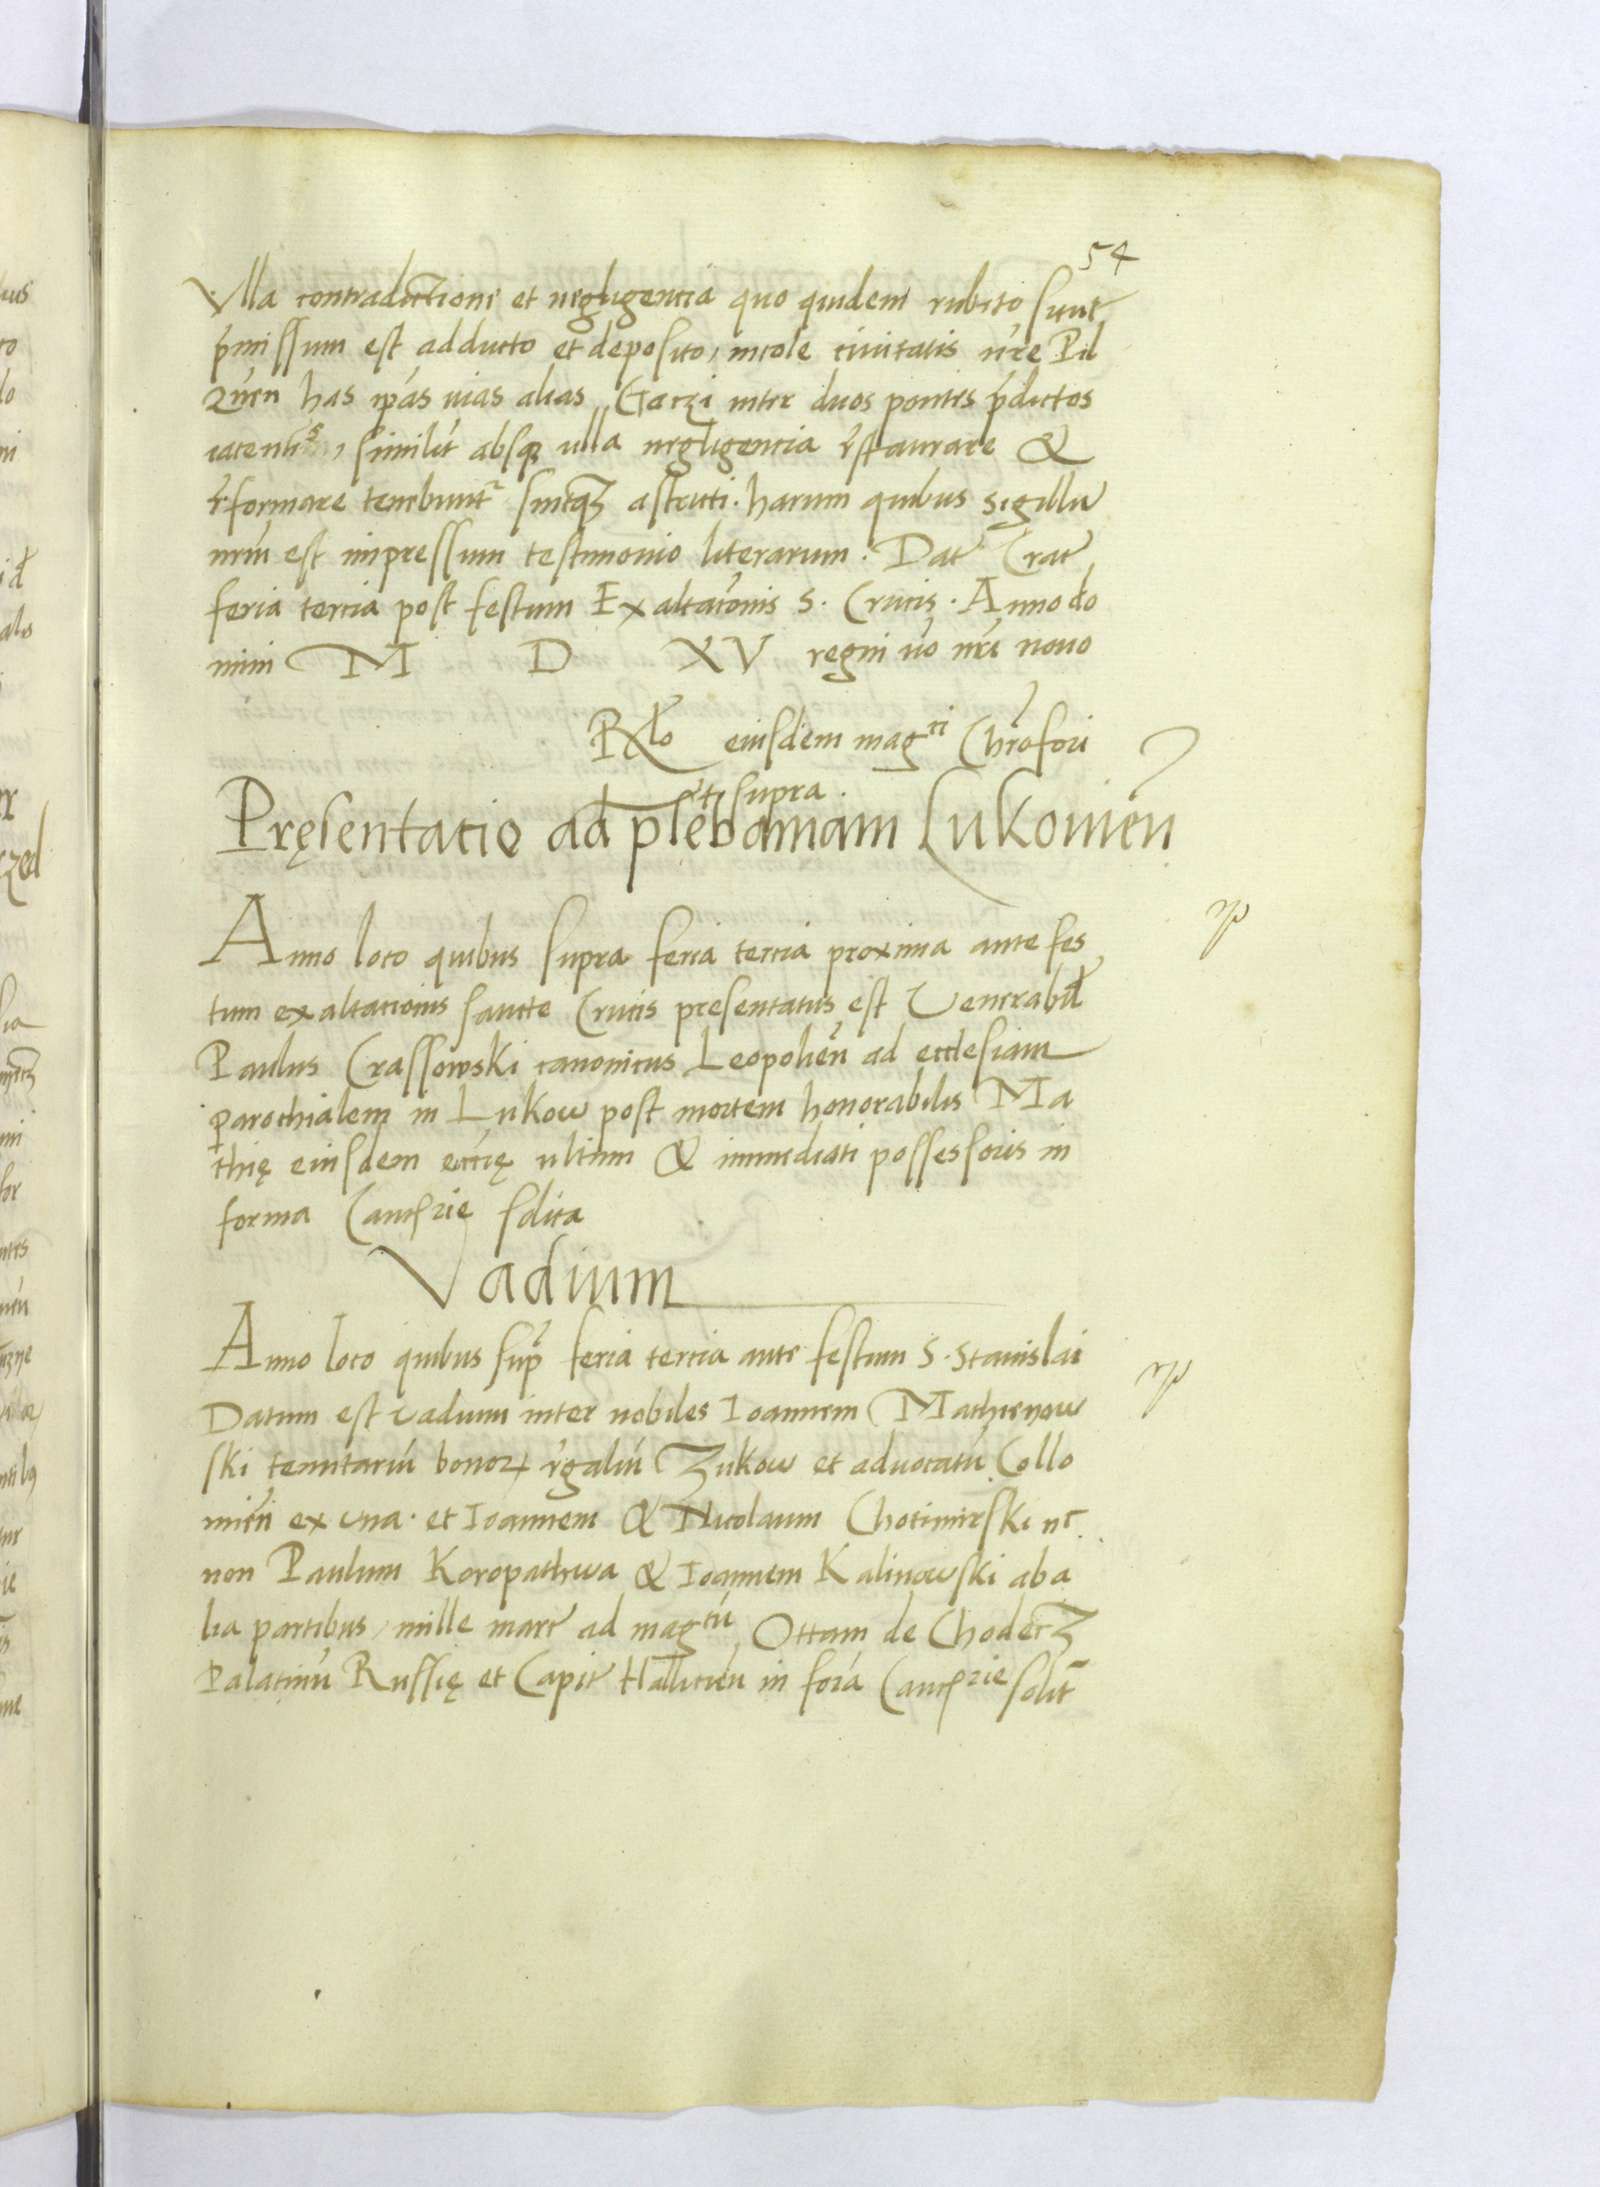 54
Vlla contradictione et negligencia quo quidem rubito sicut
p̄missum est adducto et deposito, incole ciuitatis nr̄e Pil
znen̄ has ip̄as uias alias Gaczi inter duos pontes p̄dictos
iacentes, similit̄ absq₃ ulla negligencia r̄staurare &
r̄formare tenebunt᷑ sintq₃ astricti. harum quibus sigillū
nrm̄ est impressum testimonio literarum. Dat̄ Crac̄
feria tercia post festum Exaltacōnis S. Crucis. Anno do
mini M D XV regni vō nrī nono
Rl̄o eiusdem mag^ci Chrōfori
ut supra.
Pręsentacio ad plebaniam Lukowien̄
Anno loco quibus supra feria tercia proxima ante fes
tum exaltacionis sancte Crucis presentatus est Venerabil̄
Paulus Crassowski canonicus Leopolien̄ ad ecclesiam
parochialem in Lukow post mortem honorabilis Ma
thię eiusdem ecc̄ię ultimi & immediati possessoris in
forma Canc̄rie solita
Vadium
Anno loco quibus sup̄ feria tercia ante festum S. Stanislai
Datum est vadium inter nobiles Ioannem Mathienow
ski tenutariū bonoꝝ r̄galiū Zukow et advocatū Collo
mien̄ ex una. et Ioannem & Nicolaum Chotimirski nc̄
non Paulum Koropathwa & Ioannem Kalinowski ab a
lia partibus, mille marc̄ ad mag^cū Ottam de Chodecz
Palatinū Russię et Capit̄ Halicien̄ in forā Canc̄rie solit̄